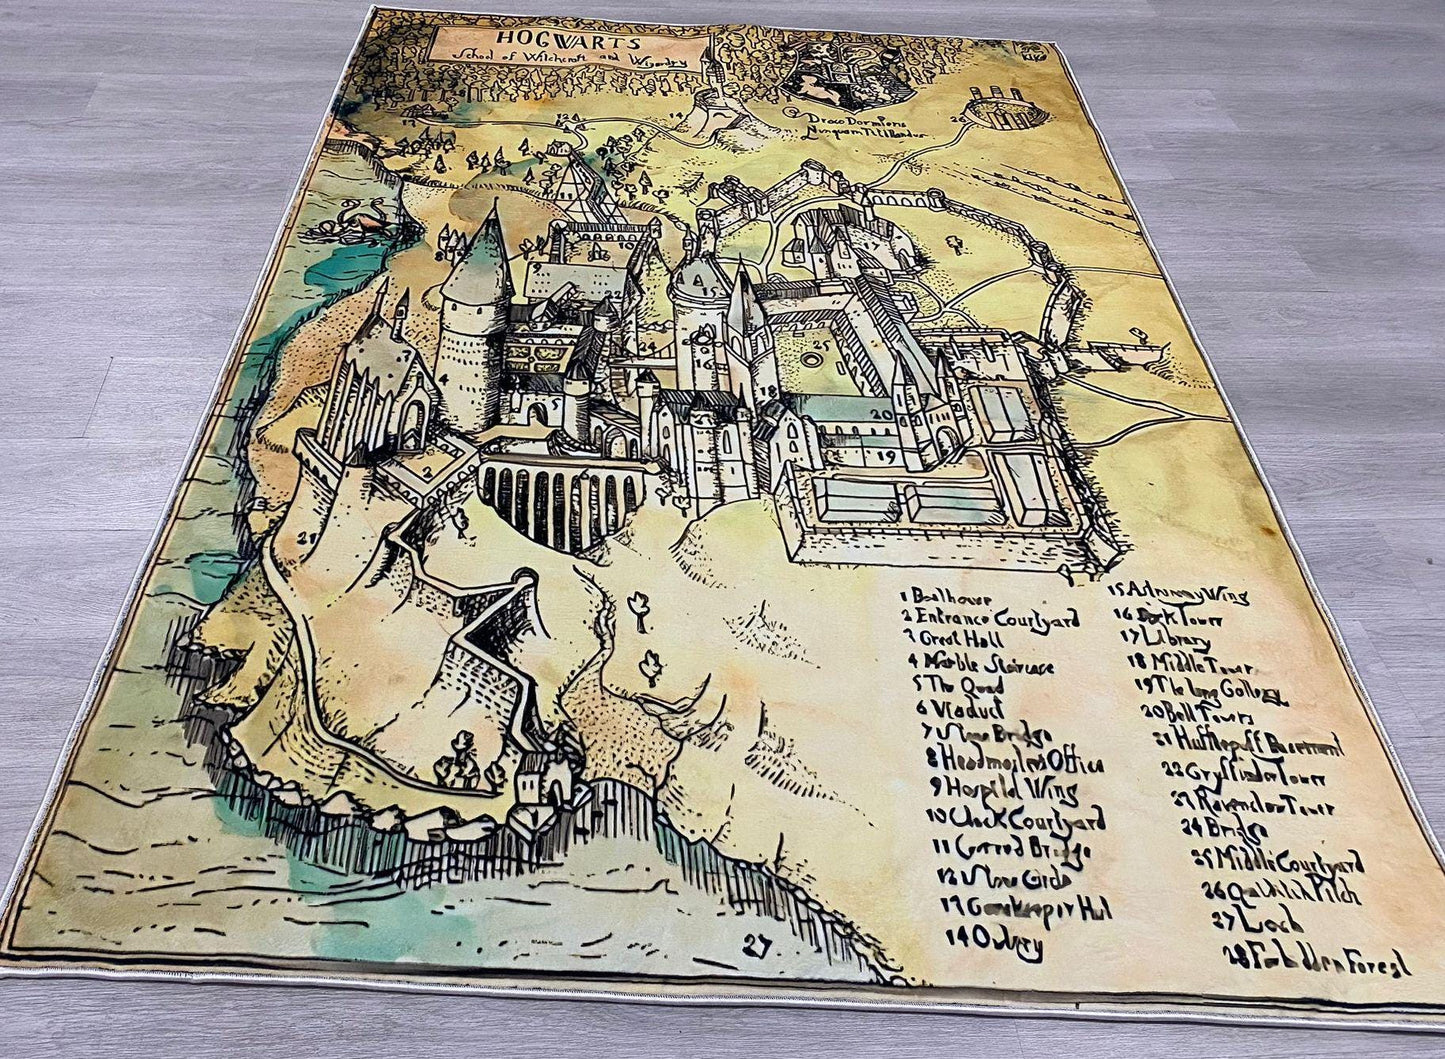 HOGWARTS
School of Witchcraft and Wizardry
Draco Dormiens
Nunquam Titillandus
1 Boathouse
2 Entrance Courtyard
3 Great Hall
4 Marble Staircase
5 The Quad
6 Viaduct
7 Stone Bridge
8 Headmasters Office
9 Hospital Wing
10 Clock Courtyard
11 Covered Bridge
12 Stone Circle
13 Gamekeeper Hut
14 Owlery
15 Astronomy Wing
16 Tower
17 Library
18 Middle Tower
19 The long Gallery
20 Bell Towers
21 Hufflepuff Basement
22 Gryffindor Tower
23 Ravenclaw Tower
24 Bridge
25 Middle Courtyard
26 Quidditch Pitch
27 Loch
28 Forbidden Forest
12
14
26
9
22
15
24
25
4
18
20
19
2
21
27